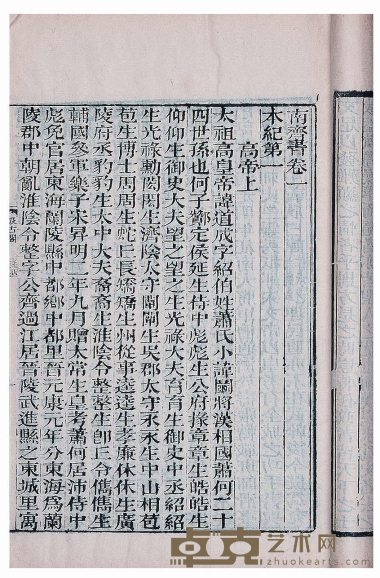 南齊書卷一
本紀第一
高帝上
太祖高皇帝諱道成字紹伯姓蕭氏小諱鬬將漢相國蕭何二十
四世孫也何子酇定侯延生侍中彪彪生公府掾章章生皓皓生
仰仰生御史大夫望之望之生光祿大夫育育生御史中丞紹紹
生光祿勳閎閎生濟陰太守闡闡生吳郡太守永永生中山相苞
苞生博士周周生蛇丘長矯矯生州從事逵逵生孝廉休休生廣
陵府丞豹豹生太中大夫裔裔生淮陰令整整生卽丘令儁儁生
輔國參軍樂子宋昇明二年九月贈太常生皇考蕭何居沛侍中
彪免官居東海蘭陵縣中都鄉中都里晉元康元年分東海爲蘭
陵郡中朝亂淮陰令整字公齊過江居晉陵武進縣之東城里寓
卓克艺术网
zhuokearts.com